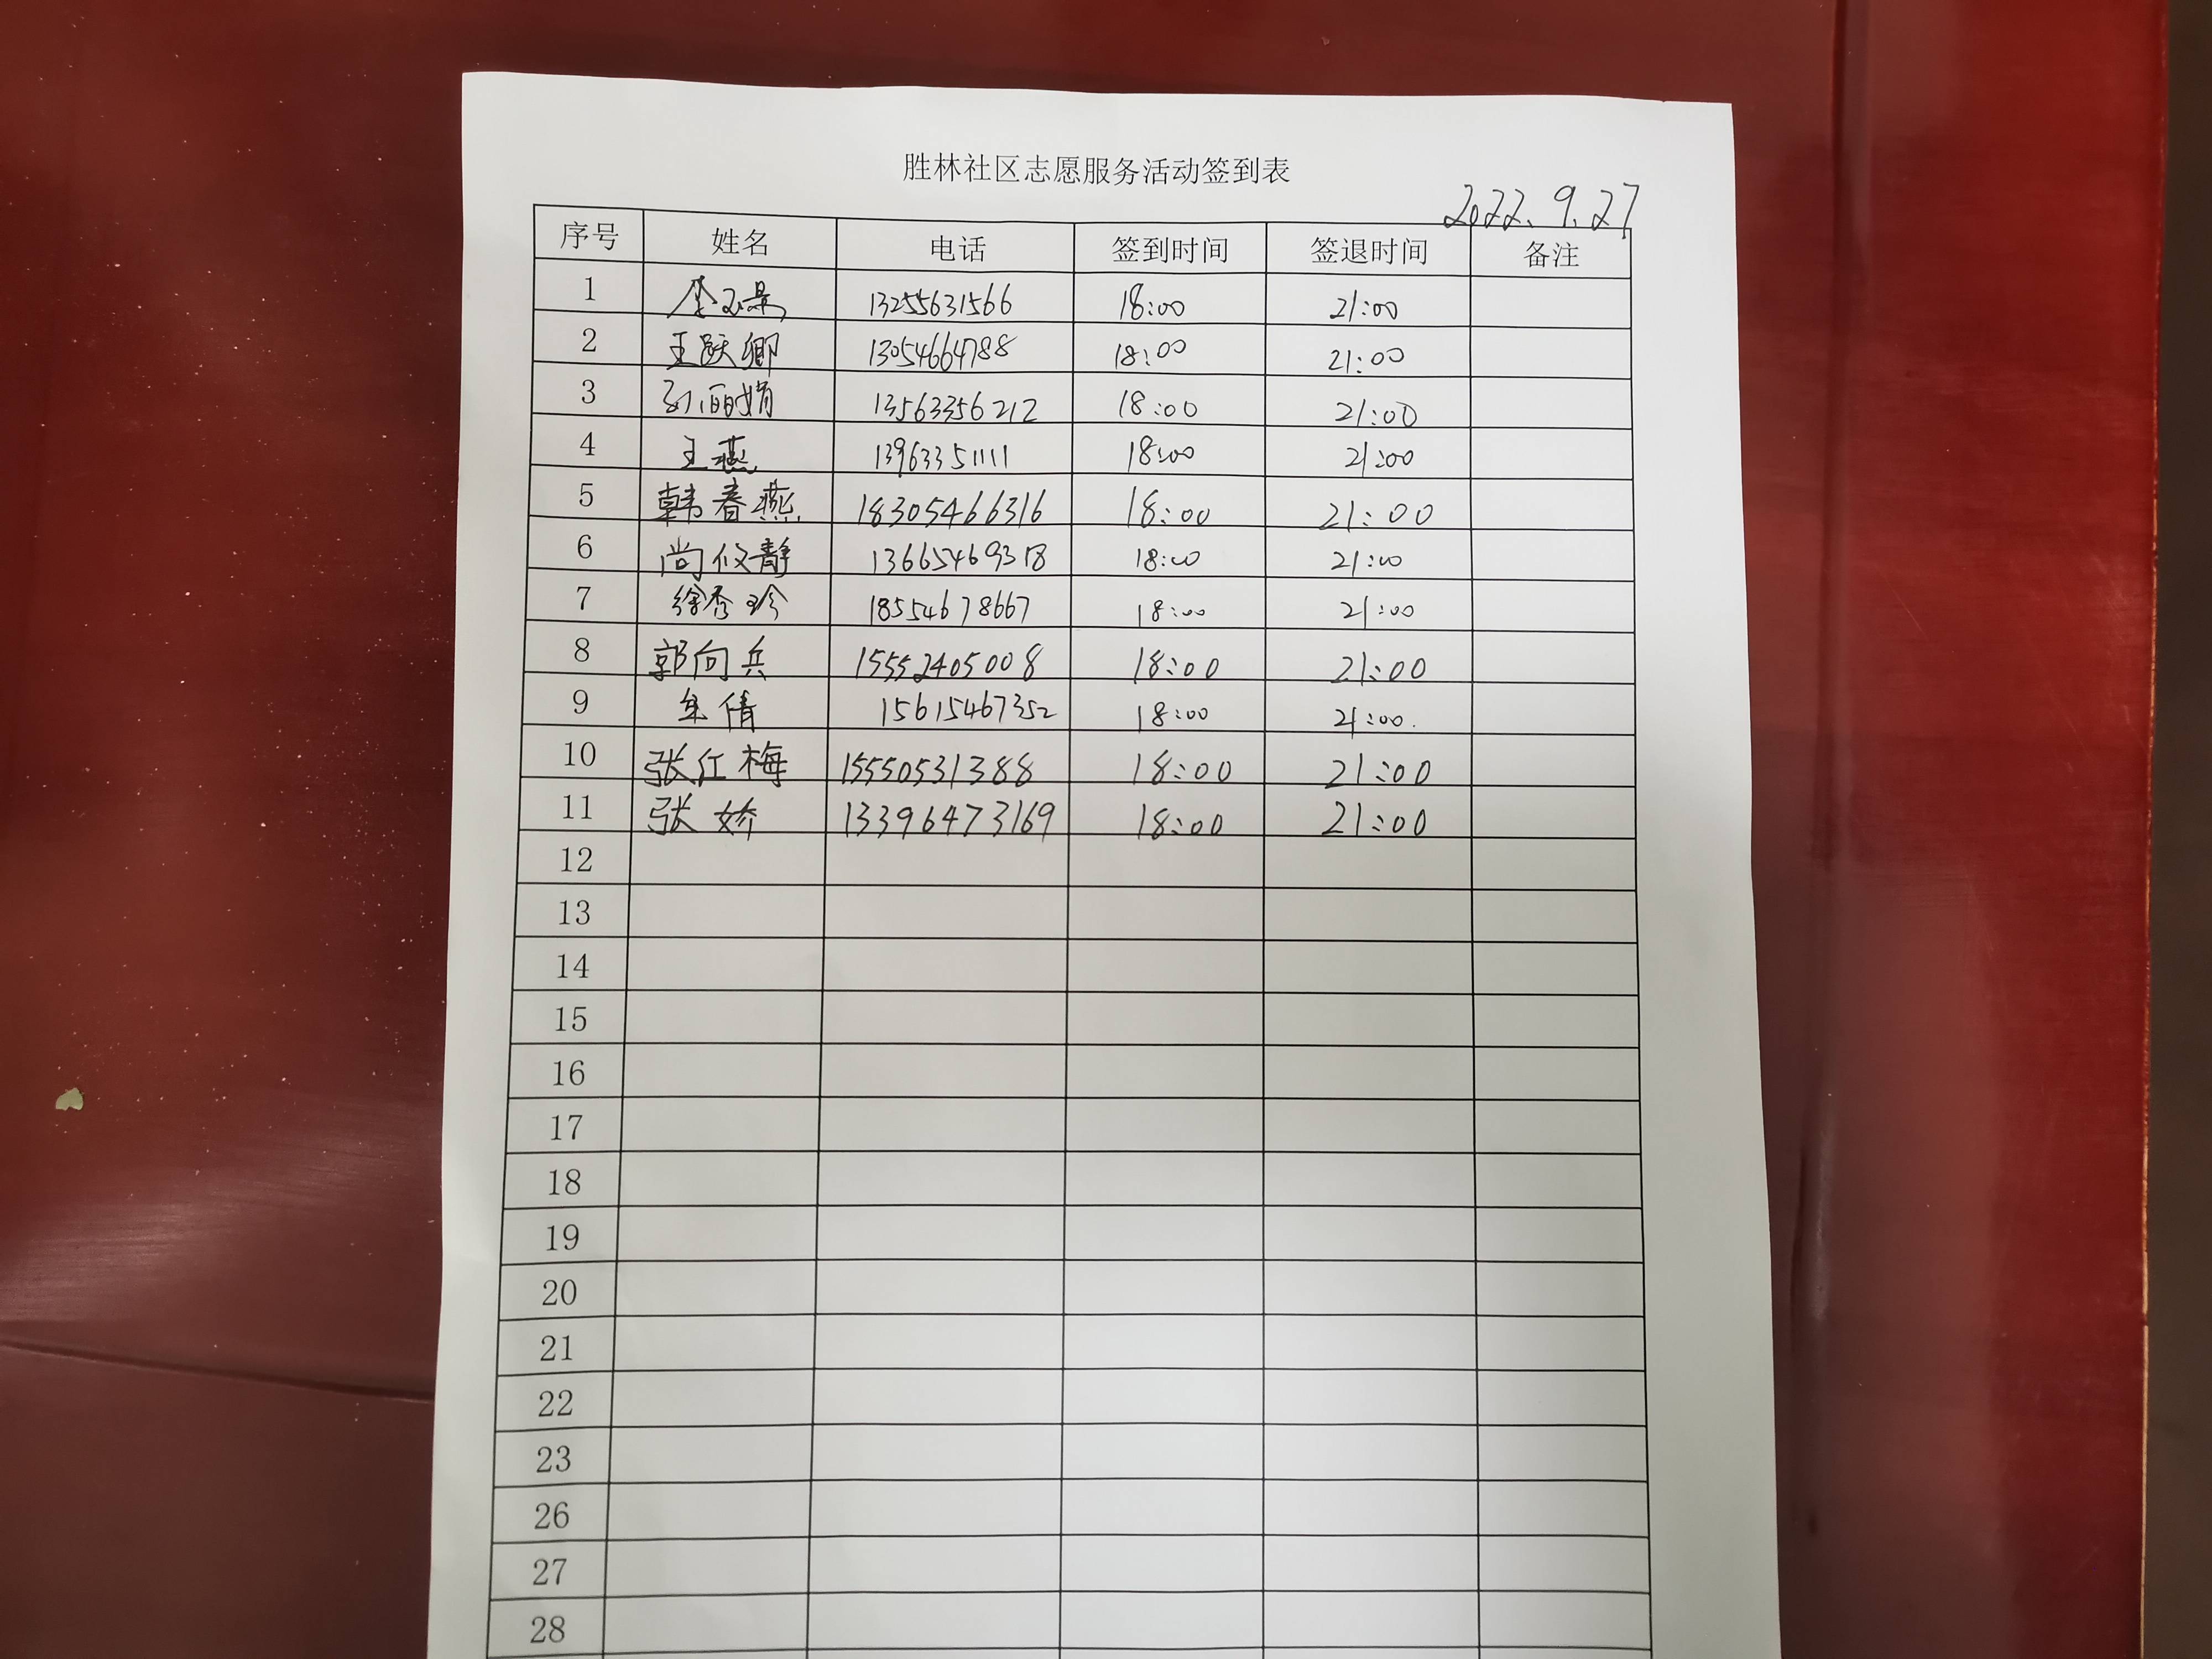 胜林社区志愿服务活动签到表
2022.9.27
序号 姓名 电话 签到时间 签退时间 备注
1 13255631566 18:00 21:00
2 王跃卿 13054664788 18:00 21:00
3 丽娟 13563356212 18:00 21:00
4 王燕 13963351111 18:00 21:00
5 韩春燕 18305466316 18:00 21:00
6 尚筱静 13665469318 18:00 21:00
7 徐秀珍 18554678667 18:00 21:00
8 郭向兵 15552405008 18:00 21:00
9 倩 15615467352 18:00 21:00.
10 张红梅 15550531388 18:00 21:00
11 张娇 13396473169 18:00 21:00
12
13
14
15
16
17
18
19
20
21
22
23
26
27
28